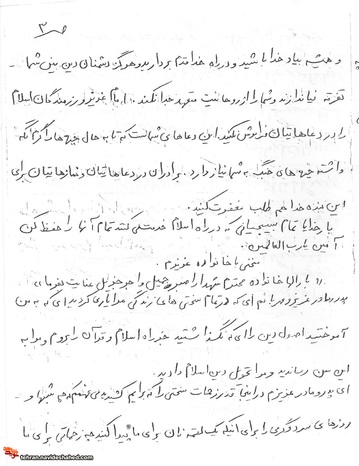 ص ۳
و همیشه بیاد خدا باشید و در راه خدا قدم بردارید و هرگز دشمنان دین بینی شما
تفرقه نیاندازند و شما را از روحانیت متعهد جدا نکنند. امام عزیز و رزمندگان اسلام
را در دعاهایتان فراموش نکنید این دعاهای شماست که تا به حال جبهه ها را گرم نگه
داشته جبهه های جنگ به شما نیاز دارد. برادران در دعاهایتان و نمازهایتان برای
این بنده خدا هم طلب مغفرت کنید.
بار خدایا تمام بسیجیانی که در راه اسلام خدمت می کنند تمام آنها را حفظ کن
آمین یارب العالمین.
سخنی با خانواده عزیزم.
بارالها خانواده محترم شهدا را صبر جمیل و اجر جزیل عنایت بفرما
پدر و مادر عزیز و مهربانم ای که در تمام سختی های زندگی مرا یاری کردید ای که به من
آموختید اصول دین را که نگذاشتید جز راه اسلام و قرآن را بروم و مرا به
این سن رساندید و مرا تحویل دین اسلام دادید.
ای پدر و مادر عزیزم در اینجا قدر زحمات سختی را که برایم کشیده اید می فهمم که چه شبها و
روزهای سرد و گرمی را برای اینکه یک لقمه نان برای ما پیدا کنید چه زحماتی برای ما
tehran.navideshahed.com